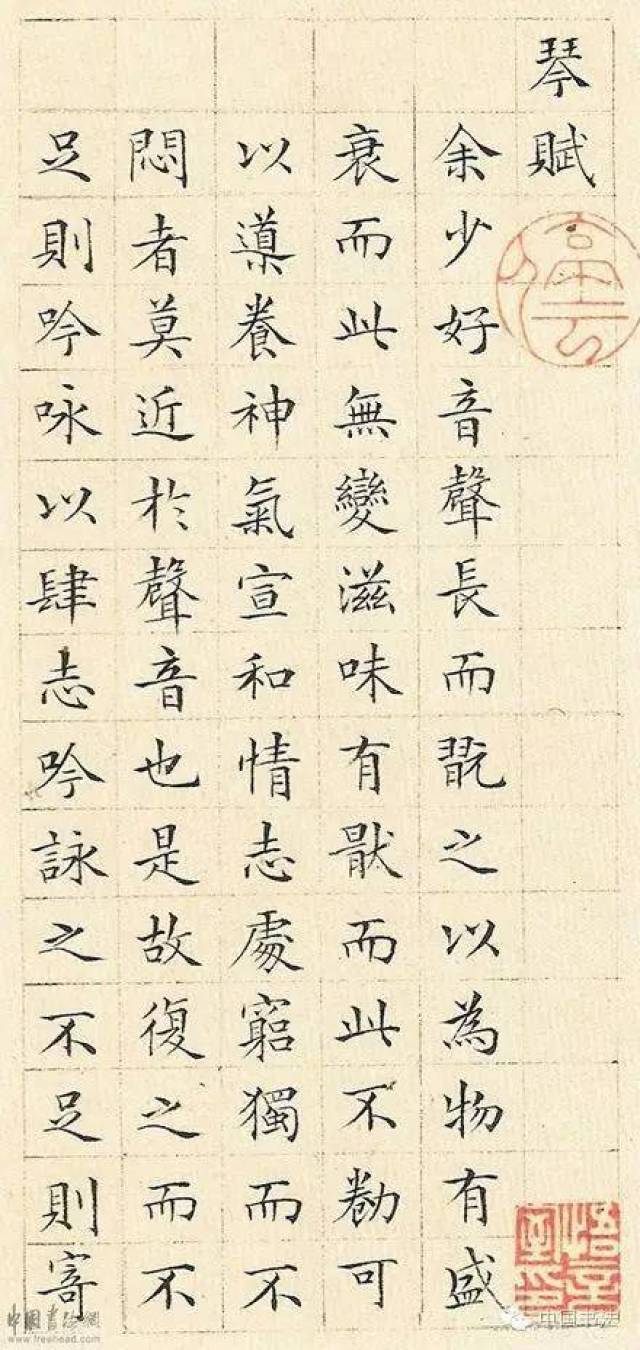 琴賦
余少好音聲長而翫之以為物有盛
衰而此無變滋味有猒而此不勌可
以導養神氣宣和情志處窮獨而不
悶者莫近於聲音也是故復之而不
足則吟咏以肆志吟詠之不足則寄
中国书法
中國書法網
www.freehead.com